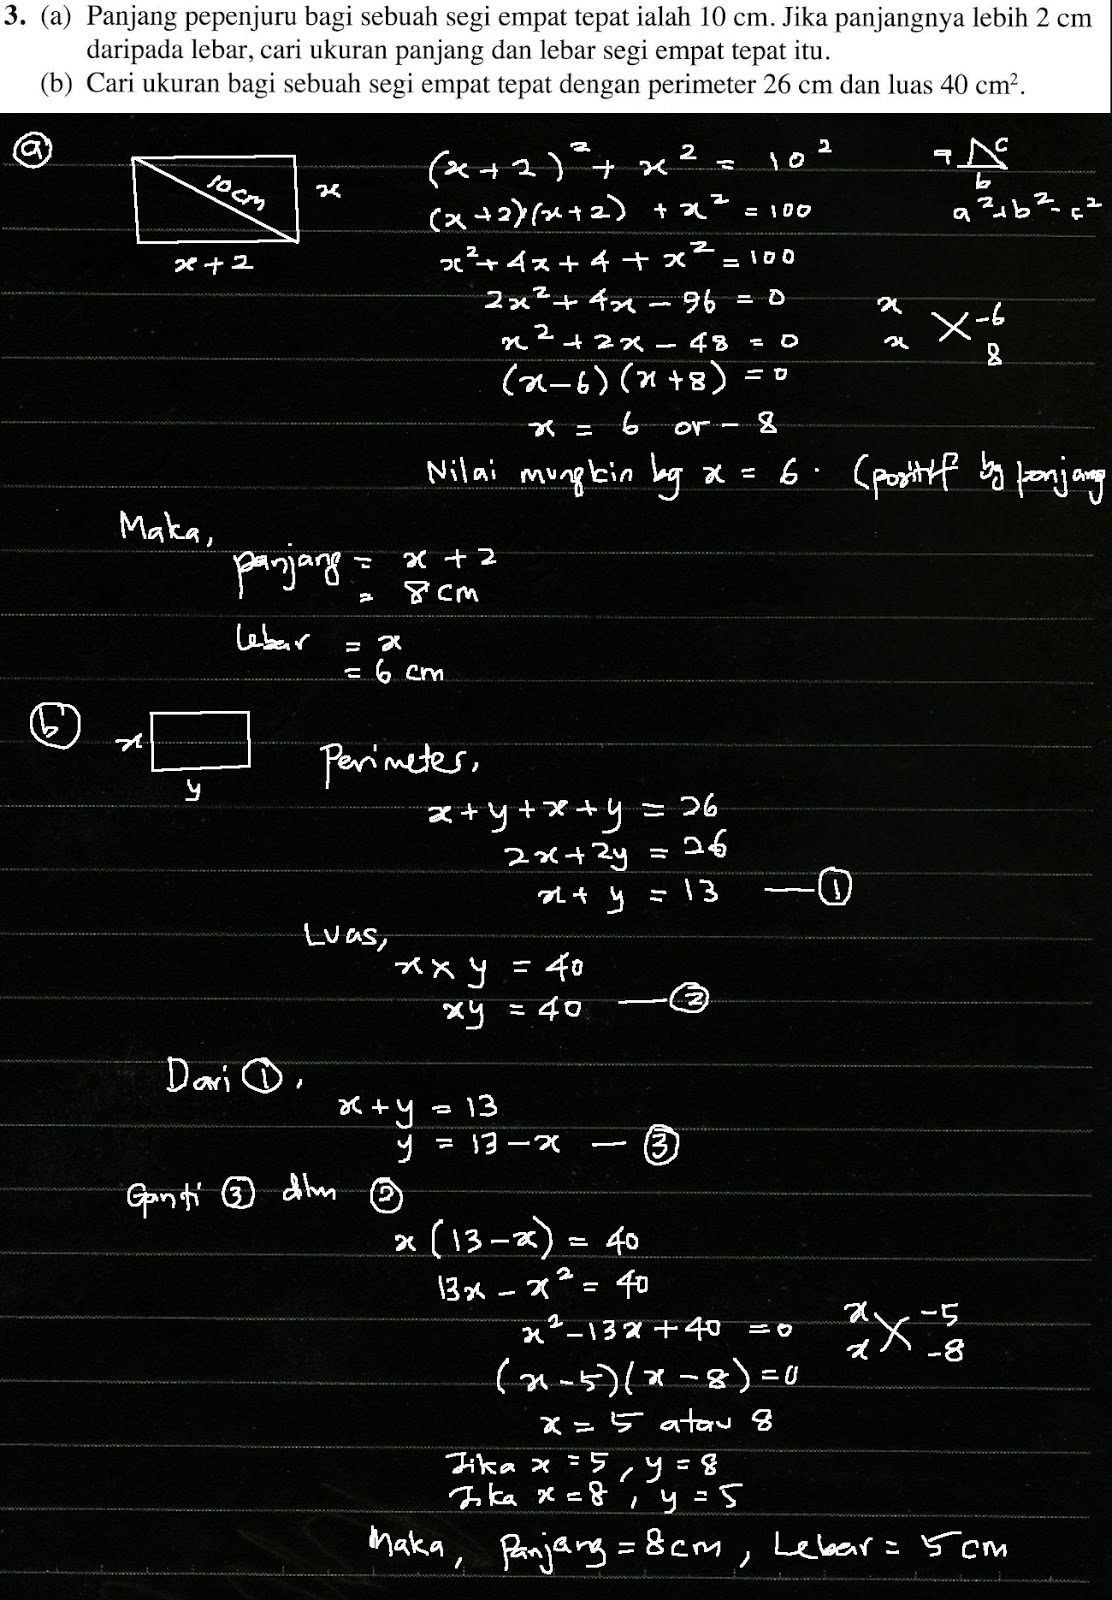 3. (a) Panjang pepenjuru bagi sebuah segi empat tepat ialah 10 cm. Jika panjangnya lebih 2 cm
daripada lebar, cari ukuran panjang dan lebar segi empat tepat itu.
(b) Cari ukuran bagi sebuah segi empat tepat dengan perimeter 26 cm dan luas 40 cm².
(a)
10cm
x
x + 2
(x + 2)² + x² = 10²
a c
b
(x + 2)(x + 2) + x² = 100
a² + b² = c²
x² + 4x + 4 + x² = 100
2x² + 4x – 96 = 0
x -6
x² + 2x – 48 = 0
x 8
(x – 6)(x + 8) = 0
x = 6 or – 8
Nilai mungkin bg x = 6. (positif bg panjang
Maka,
panjang = x + 2
= 8 cm
Lebar = x
= 6 cm
(b)
x
y
Perimeter,
x + y + x + y = 26
2x + 2y = 26
x + y = 13 — ①
Luas,
x × y = 40
xy = 40 — ②
Dari ①,
x + y = 13
y = 13 – x — ③
Ganti ③ dlm ②
x (13 – x) = 40
13x – x² = 40
x -5
x² – 13x + 40 = 0
x -8
(x – 5)(x – 8) = 0
x = 5 atau 8
Jika x = 5, y = 8
Jika x = 8, y = 5
Maka, Panjang = 8cm, Lebar = 5 cm